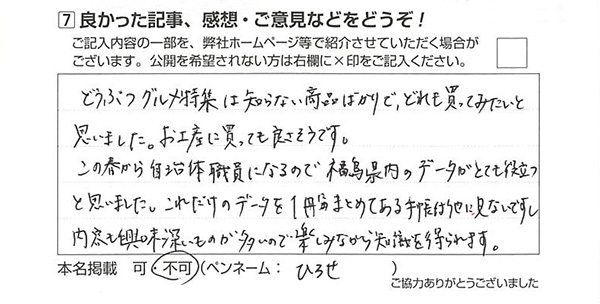 7 良かった記事、感想・ご意見などをどうぞ！
ご記入内容の一部を、弊社ホームページ等で紹介させていただく場合が
ございます。公開を希望されない方は右欄に×印をご記入ください。
どうぶつグルメ特集は知らない商品ばかりで、どれも買ってみたいと
思いました。お土産に買っても良さそうです。
この春から自治体職員になるので福島県内のデータがとても役立つ
と思いました。これだけのデータを1冊にまとめてある手帳は他に見ないですし
内容も興味深いものが多いので楽しみながら知識を得られます。
本名掲載 可・不可（ペンネーム： ひろせ ）
ご協力ありがとうございました